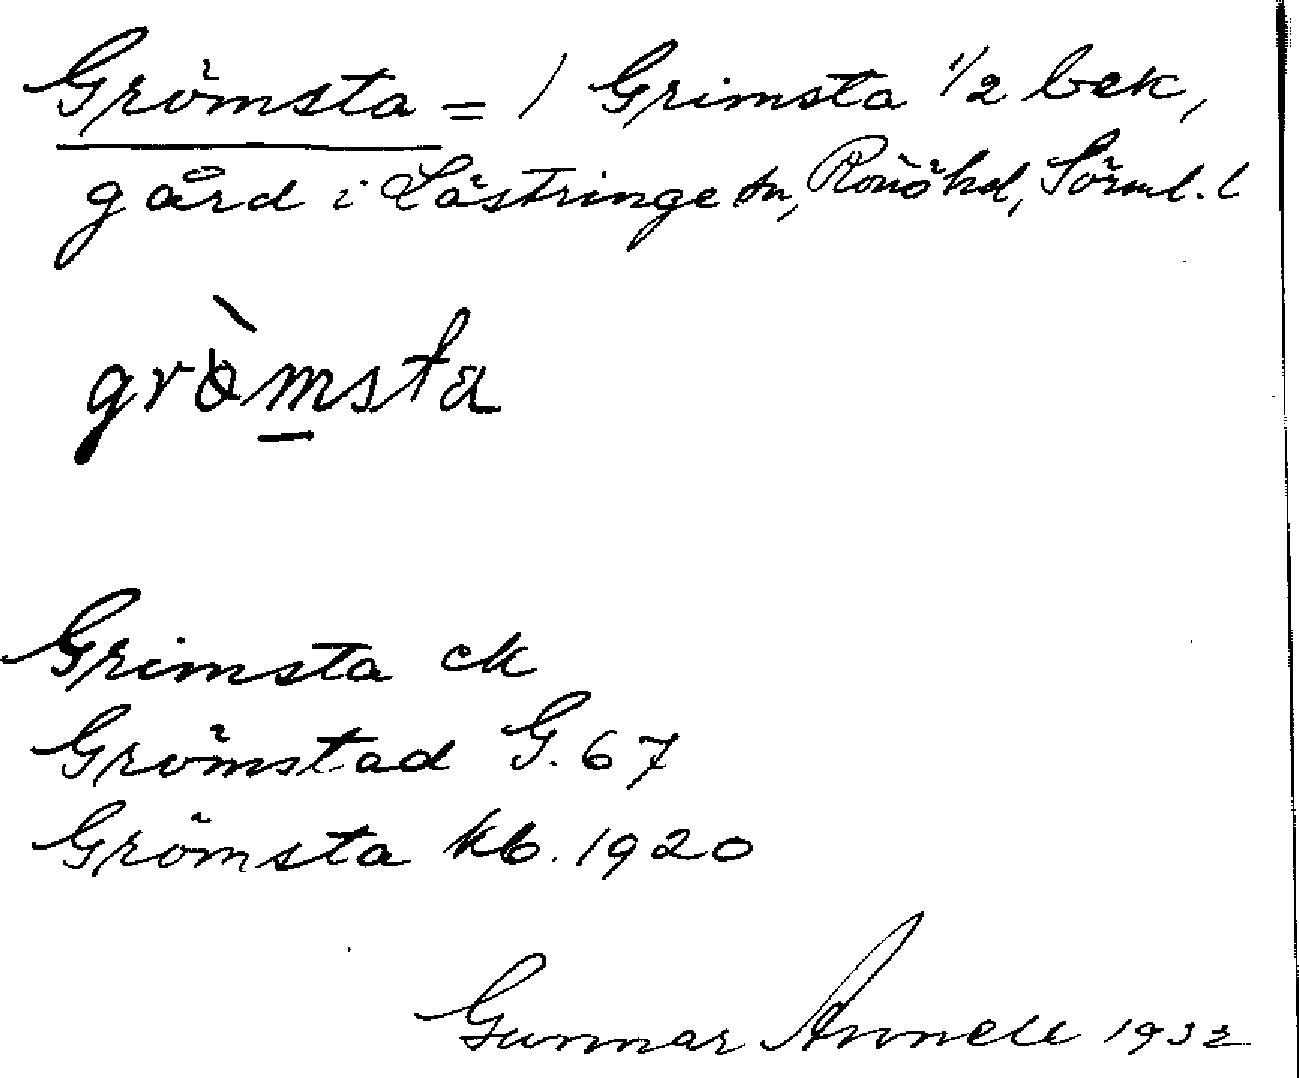 Grömsta = / Grimsta 1/2 bek,
gård i Lästringe sn, Rönö hd, Sörml. l
grömsta
Grimsta ek
Grömstad G. 67
Grömsta kb. 1920
Gunnar Annell 1932